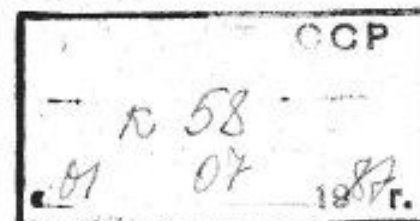 ССР
к 58
« 01 07 1987 г.